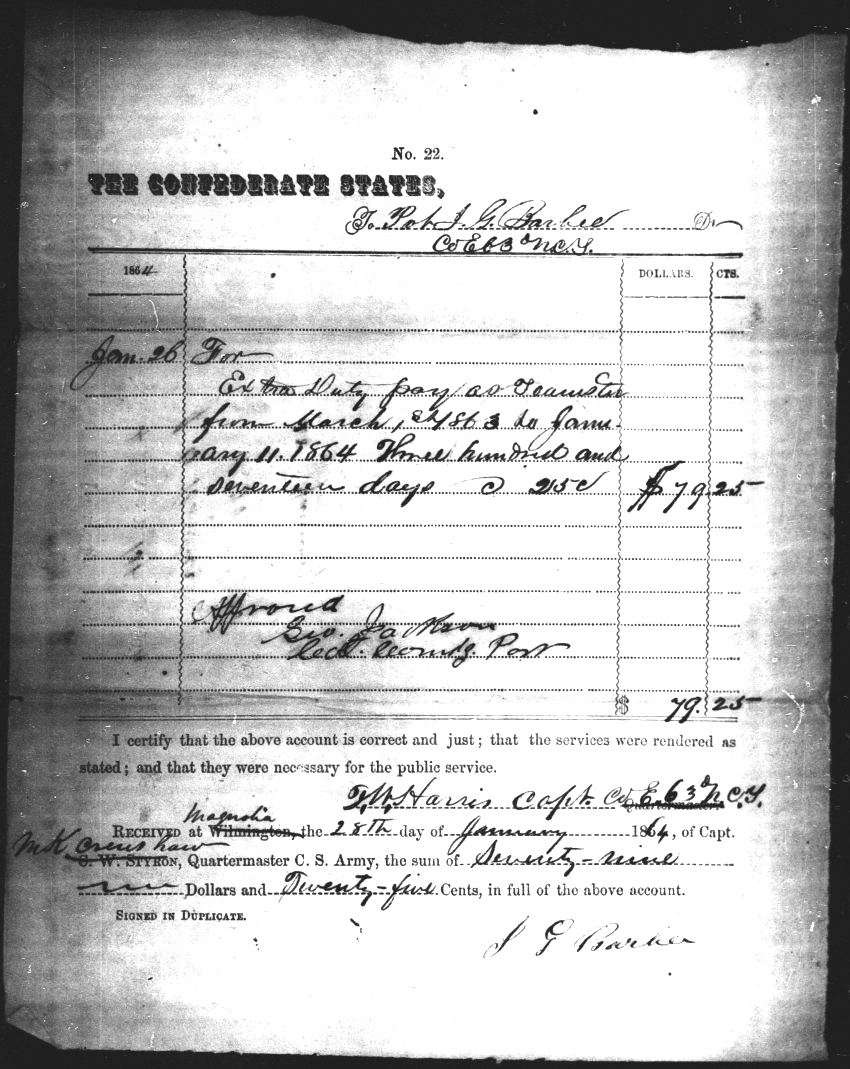 No. 22.
THE CONFEDERATE STATES,
To Pvt J. G. Barbee Dr
Co E 63d N.C.T.
1864 DOLLARS. CTS.
Jan. 26 For
Extra Duty pay as Teamster
from March 1st 1863 to Janu-
ary 11. 1864 Three hundred and
seventeen days @ 25c $79.25
Approved
Geo. Jackson
Comdg. Post
$ 79.25
I certify that the above account is correct and just; that the services were rendered as
stated; and that they were necessary for the public service.
Harris Capt. Co E. 63d N.C.T.
Quartermaster.
Magnolia
RECEIVED at Wilmington, the 28th day of January 1864, of Capt.
M K Crenshaw
S. W. STYRON, Quartermaster C. S. Army, the sum of Seventy-nine
Dollars and Twenty-five Cents, in full of the above account.
SIGNED IN DUPLICATE.
J G Barbee